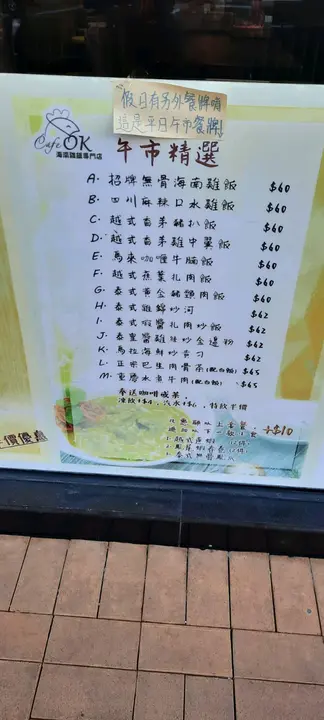 假日有另外餐牌唷
這是平日午市餐牌!
Cafe OK
海南雞飯專門店
午市精選
A. 招牌無骨海南雞飯 $60
B. 四川麻辣口水雞飯 $60
C. 越式香茅豬扒飯 $60
D. 越式香茅雞中翼飯 $60
E. 馬來咖喱牛腩飯 $60
F. 越式蕉葉扎肉飯 $60
G. 泰式黃金豬頸肉飯 $60
H. 泰式雞錦炒河 $62
I. 泰式蝦醬扎肉炒飯 $62
J. 泰皇醬雞絲炒金邊粉 $62
K. 馬拉海鮮炒貴刁 $62
L. 正宗巴生肉骨茶(配白飯) $65
M. 重慶水煮牛肉(配白飯) $65
奉送咖啡或茶,
凍飲+$4, 汽水+$6, 特飲半價
+$10